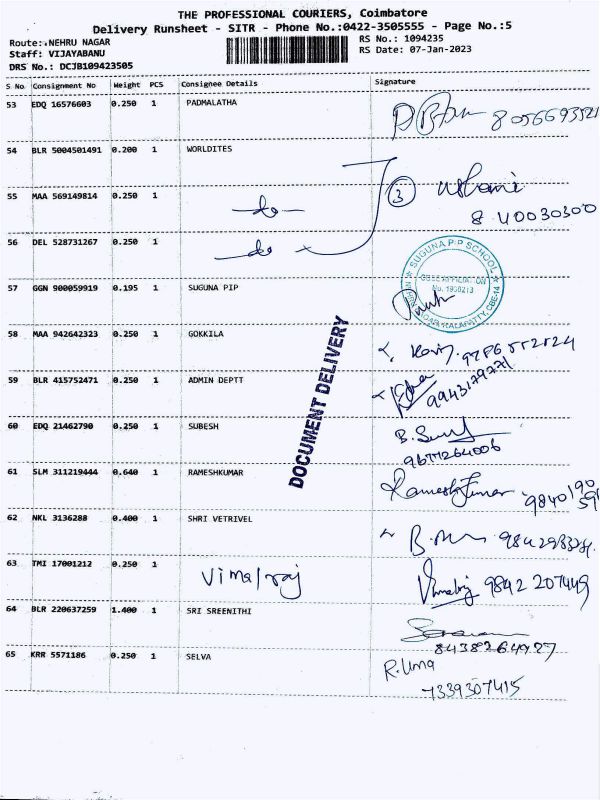 THE PROFESSIONAL COURIERS, Coimbatore
Delivery Runsheet - SITR - Phone No.:0422-3505555 - Page No.:5
Route: NEHRU NAGAR
RS No.: 1094235
Staff: VIJAYABANU
RS Date: 07-Jan-2023
DRS No.: DCJB109423505
S No Consignment No Weight PCS Consignee Details Signature
53 EDQ 16576603 0.250 1 PADMALATHA
54 BLR 5004501491 0.200 1 WORLDITES
55 MAA 569149814 0.250 1 -do- 3
8 40030300
56 DEL 528731267 0.250 1 -do-
SUGUNA PIP SCHOOL
57 GGN 900059919 0.195 1 SUGUNA PIP
58 MAA 942642323 0.250 1 GOKKILA
59 BLR 415752471 0.250 1 ADMIN DEPTT
9943179771
DOCUMENT DELIVERY
60 EDQ 21462790 0.250 1 SUBESH
9677264006
61 SLM 311219444 0.640 1 RAMESHKUMAR Rameshkumar
62 NKL 3136288 0.400 1 SHRI VETRIVEL
63 TMI 17001212 0.250 1 Vimalraj Vimalraj 9842 207449
64 BLR 220637259 1.400 1 SRI SREENITHI
65 KRR 5571186 0.250 1 SELVA R.Uma
7339307415